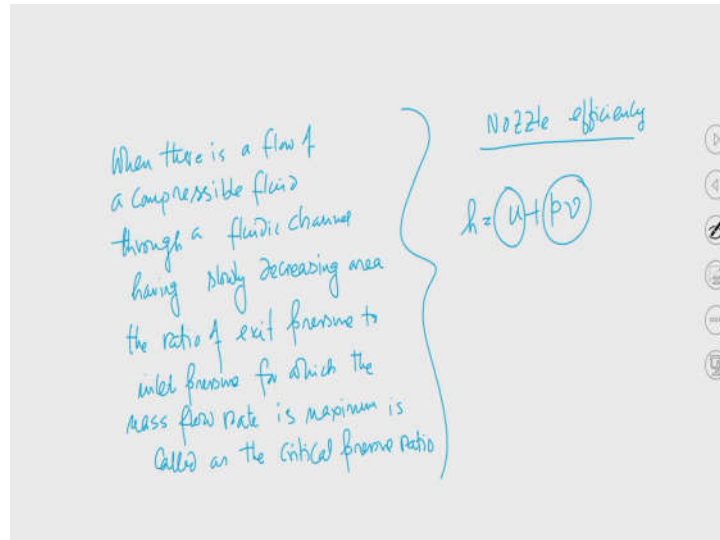 When there is a flow of
a compressible fluid
through a fluidic channel
having slowly decreasing area
the ratio of exit pressure to
inlet pressure for which the
mass flow rate is maximum is
called as the critical pressure ratio
Nozzle efficiency
h = u + pv